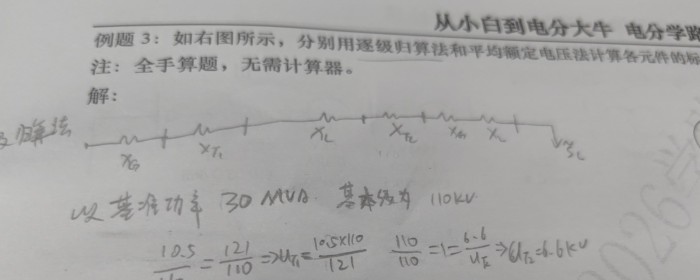 从小白到电分大牛 电分学
例题 3：如右图所示，分别用逐级归算法和平均额定电压法计算各元件的标
注：全手算题，无需计算器。
解：
归算法
X_G X_T1 X_L X_T2 X_L S_L
以基准功率 30 MVA 基本级为 110KV
10.5/ = 121/110 ⇒ = 10.5×110/121 110/110 = 1 = 6.6/ ⇒ = 6.6 kV
2026